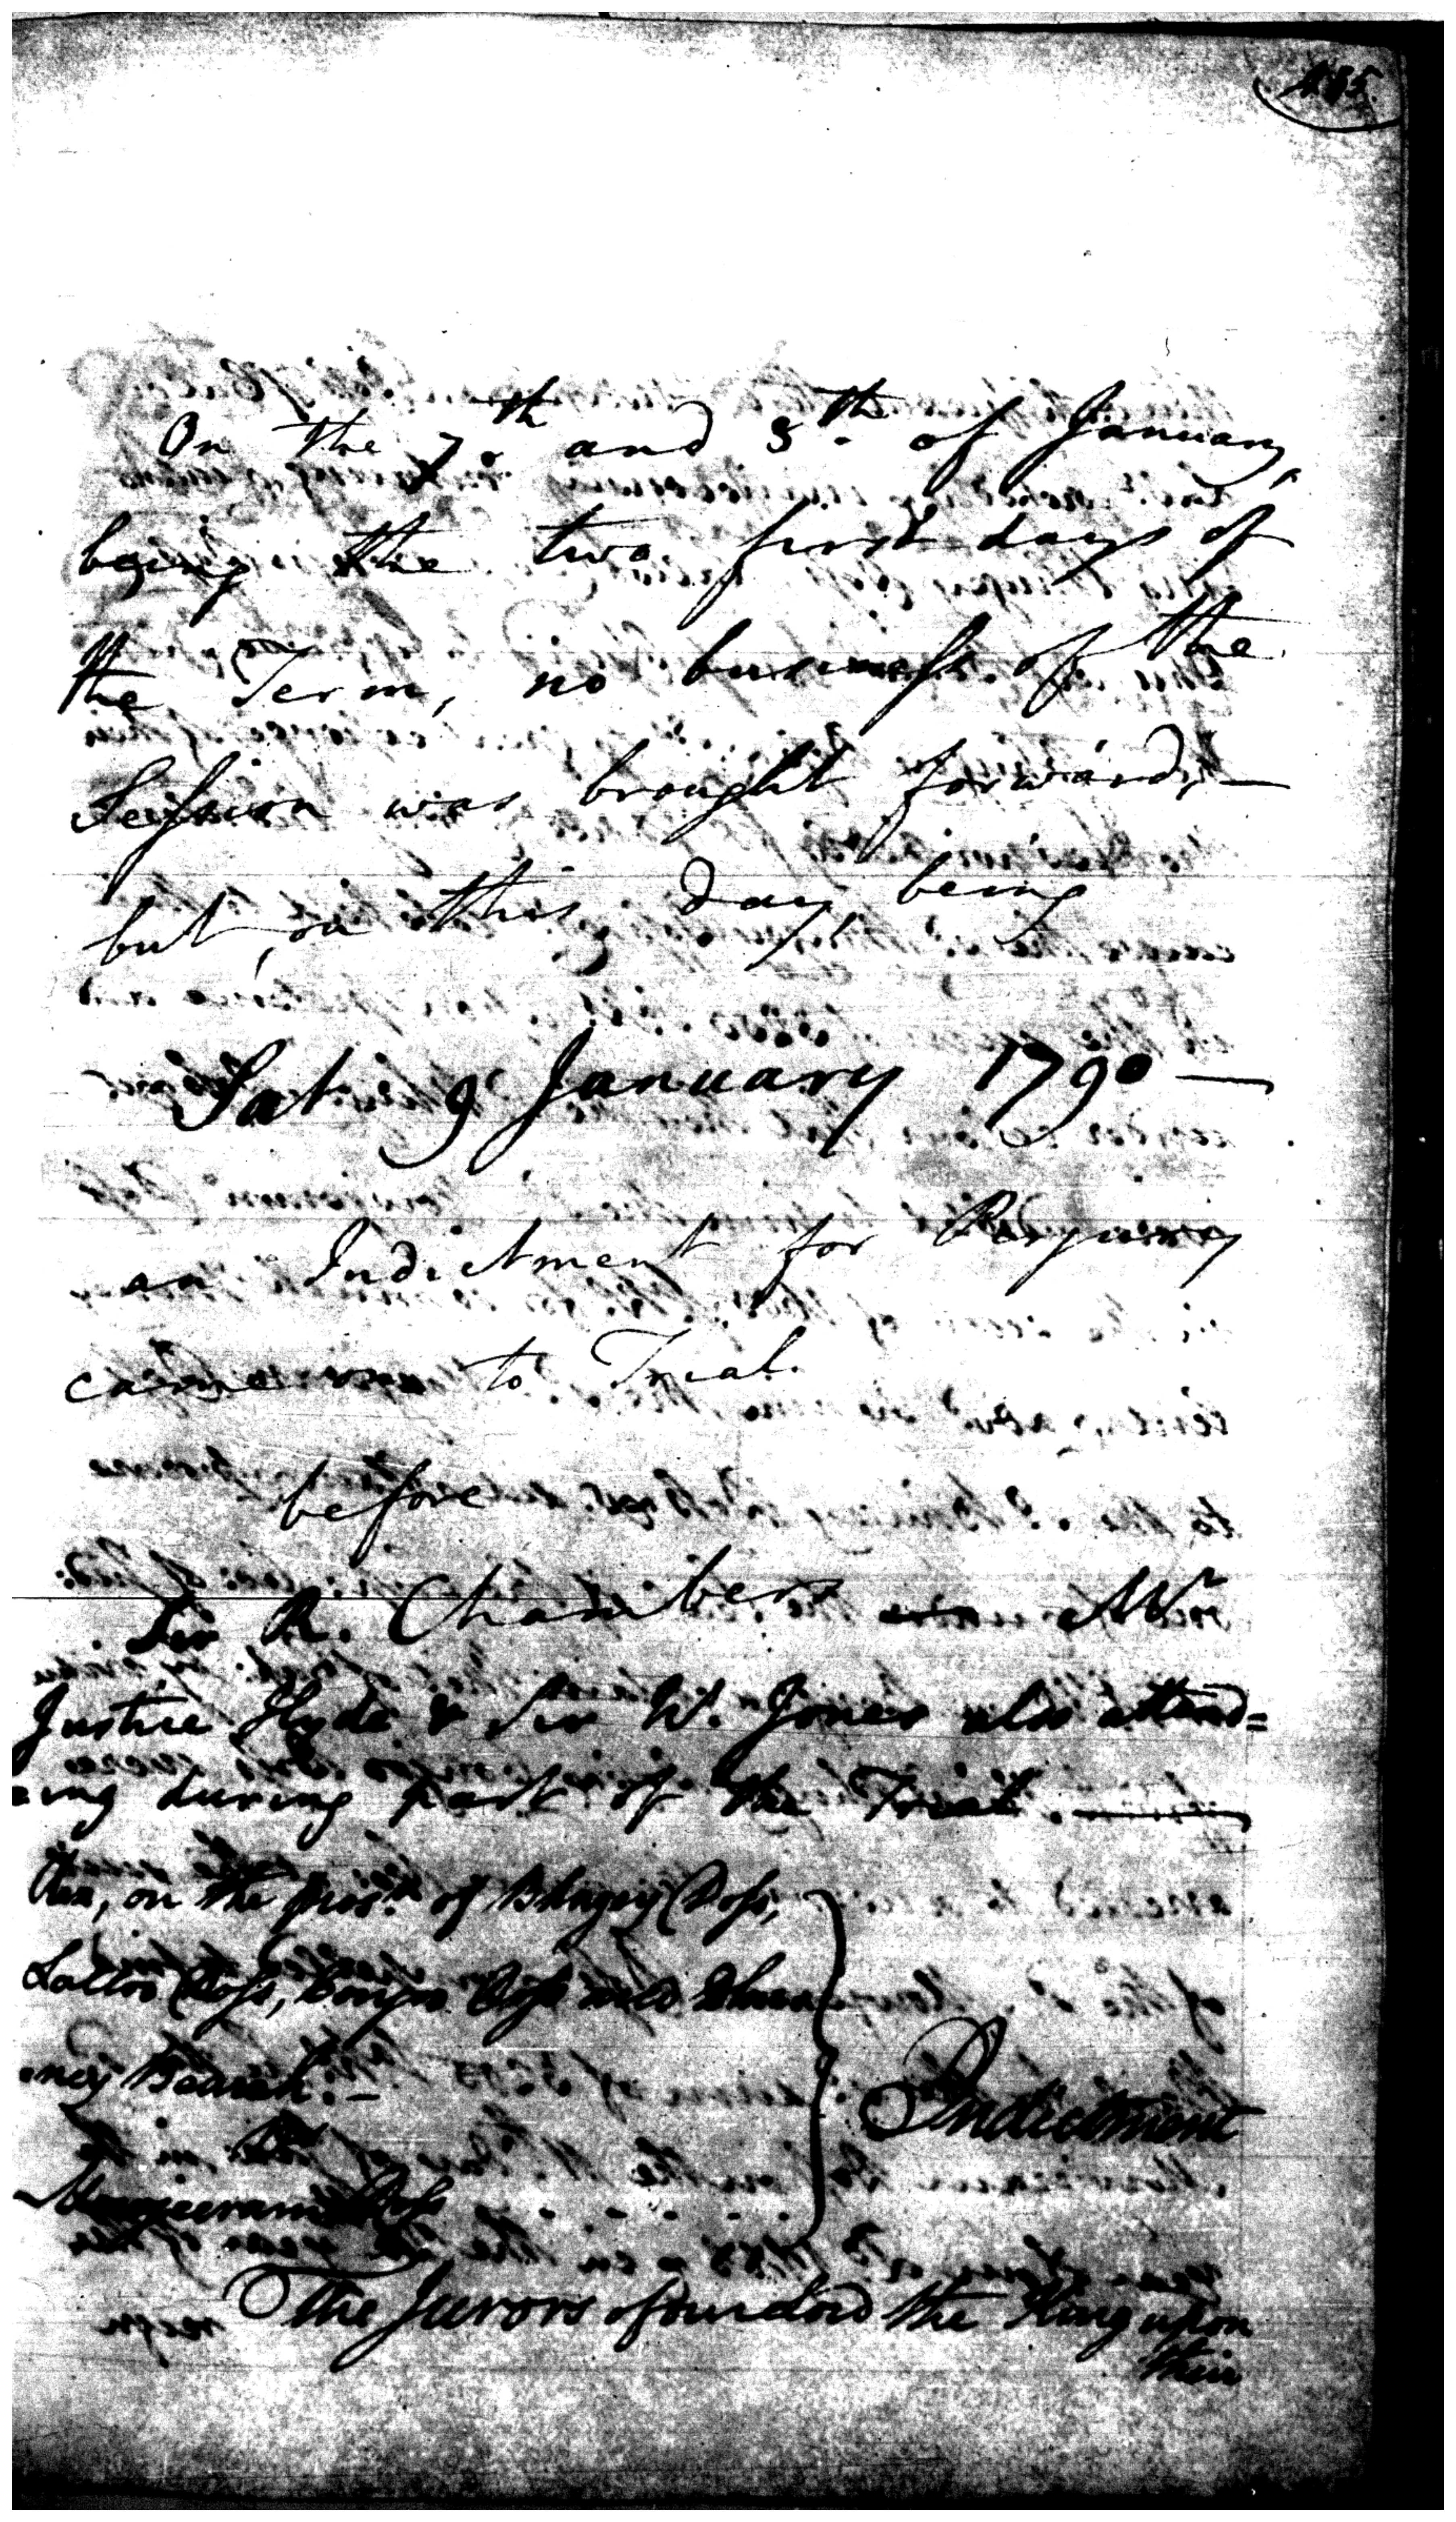 On the 7th and 8th of January,
being the two first days of
the Term, no business of the
Session was brought forward; —
but, on this day, being
Sat 9 January 1790 —
an Indictment for Perjury
came on to Trial.
before
Sir R. Chambers — Mr
Justice Hyde & Sir W. Jones also attend=
=ing during part of the Trial. —
Rex, on the pros.n of Doss,
Doss, Doss and
Indictment
Doss
The Jurors of our Lord the King upon
their